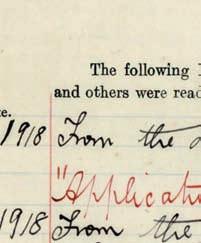 The following
and others were read
te.
1918 From the
"Applicati
1918 From the